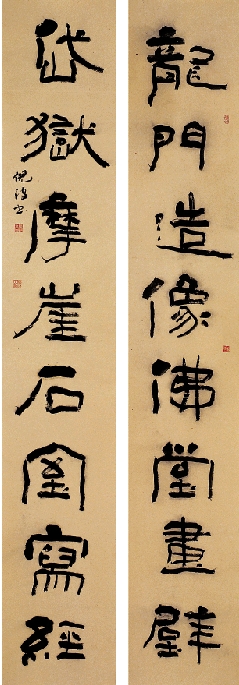 龍門造像佛堂畫壁
岱獄摩崖石室寫經